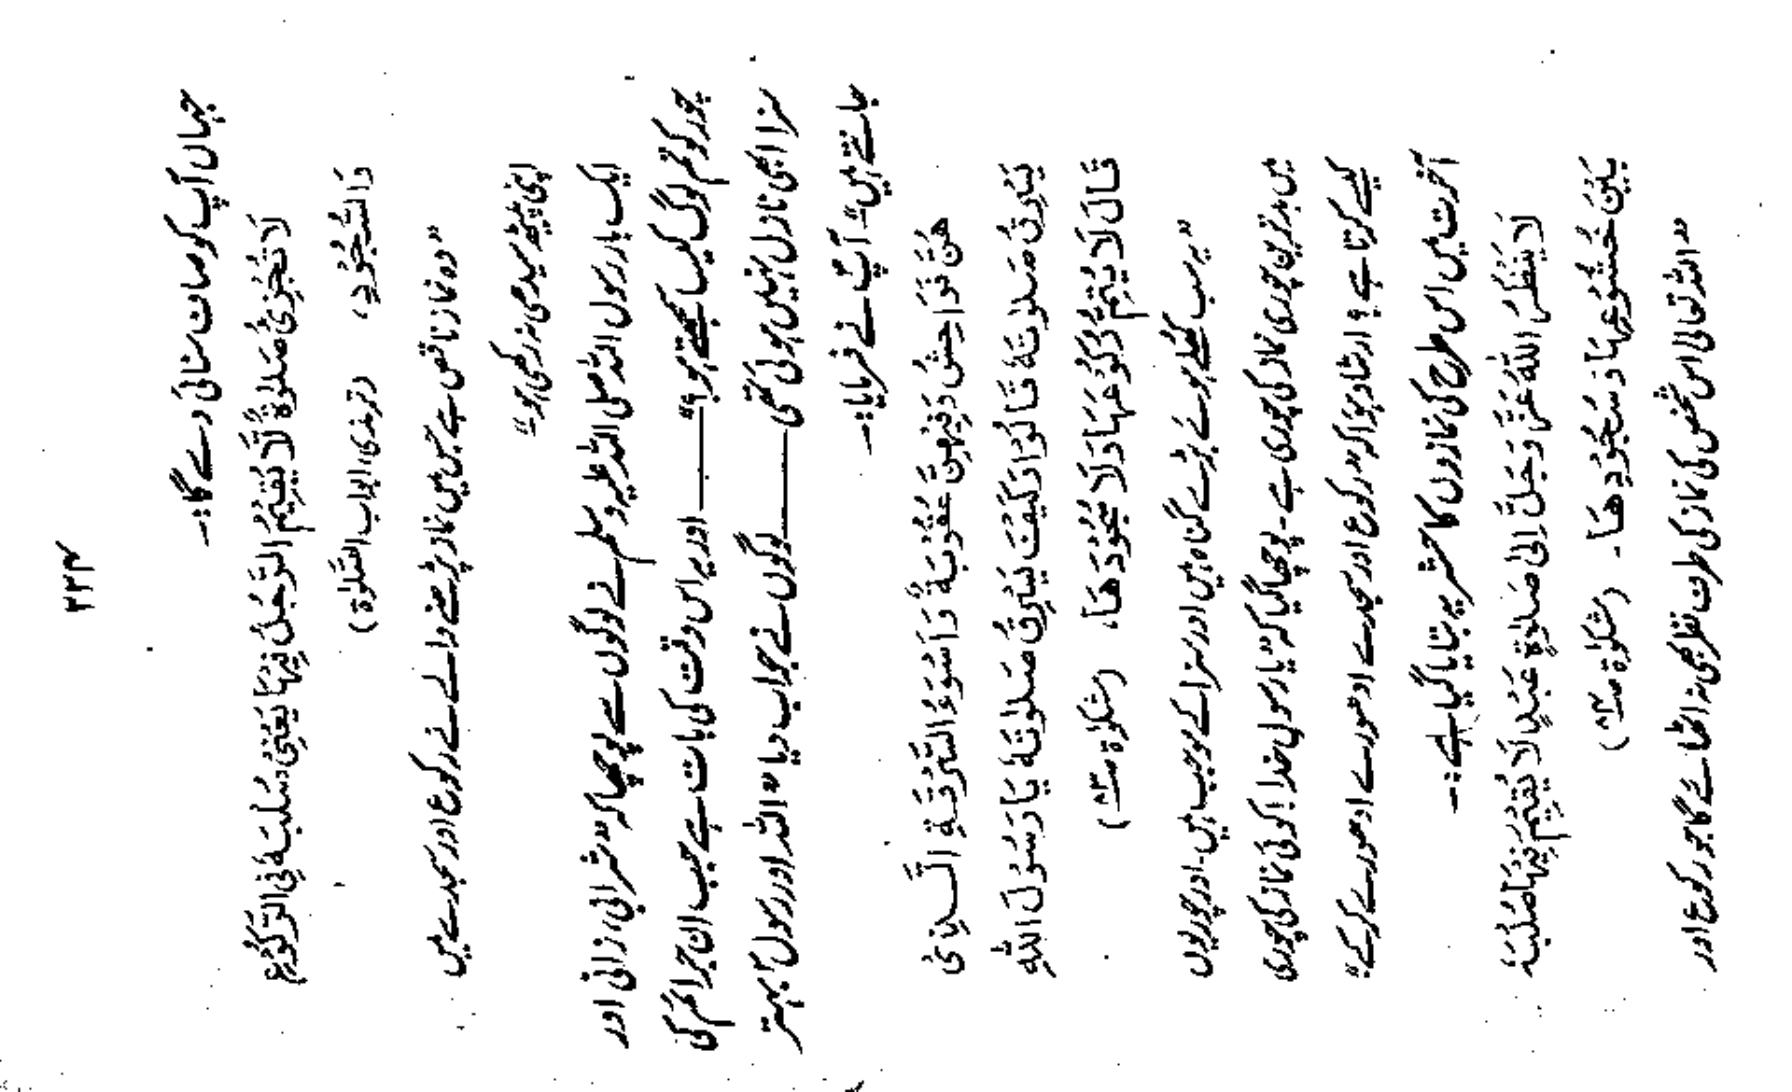 ۲۳۴
جہاں آپ کو صاف سنائی دے گا:۔
لَا تُجْزِئُ صَلٰوةٌ لَّا يُقِيْمُ الرَّجُلُ فِيْهَا يَعْنِيْ صُلْبَهٗ فِي الرُّكُوْعِ
وَالسُّجُوْدِ، (ترمذی، ابواب الصَّلٰوۃ)
"وہ نماز ناقص ہے جس میں نماز پڑھنے والے نے رکوع اور سجدے میں
اپنی پیٹھ سیدھی نہ رکھی ہو"
ایک بار رسول اللہ صلی اللہ علیہ وسلم نے لوگوں سے پوچھا کہ "شرابی، زانی اور
چور کو تم لوگ کیسا سمجھتے ہو؟" ــــــ اور یہ اس وقت کی بات ہے جب ان جرائم کی
سزا ابھی نازل نہیں ہوئی تھی ــــــ لوگوں نے جواب دیا "اللہ اور رسولؐ بہتر
جانتے ہیں" آپؐ نے فرمایا:۔
هُنَّ فَوَاحِشُ وَفِيْهِنَّ عُقُوْبَةٌ وَاَسْوَءُ السَّرْقَةِ الَّـذِيْ
يَسْرِقُ صَلٰوتَهٗ قَالُوْا وَكَيْفَ يَسْرِقُ صَلٰوتَهٗ يَا رَسُوْلَ اللّٰهِ
قَالَ لَا يُتِمُّ رُكُوْعَهَا وَلَا سُجُوْدَهَا۔ (مشکوٰۃ ص۸۳)
"یہ سب کھلے ہوئے بڑے گناہ ہیں اور سزا کے موجب ہیں۔ اور چوریوں
میں بدترین چوری نماز کی چوری ہے۔ پوچھا گیا کہ "یا رسولِ خدا! کوئی نماز کی چوری
کیسے کرتا ہے؟ ارشاد ہوا کہ "رکوع اور سجدے ادھورے ادھورے کرکے"
آخرت میں اس طرح کی نمازوں کا حشر یہ بتایا گیا ہے:۔
لَا يَنْظُرُ اللّٰهُ عَزَّ وَجَلَّ اِلٰى صَلٰوةِ عَبْدٍ لَا يُقِيْمُ فِيْهَا صُلْبَهٗ
بَيْنَ خُشُوْعِهَا وَسُجُوْدِهَا۔ (مشکوٰۃ ص۸۳)
"اللہ تعالیٰ اس شخص کی نماز کی طرف نظر بھی نہ اٹھائے گا جو رکوع اور